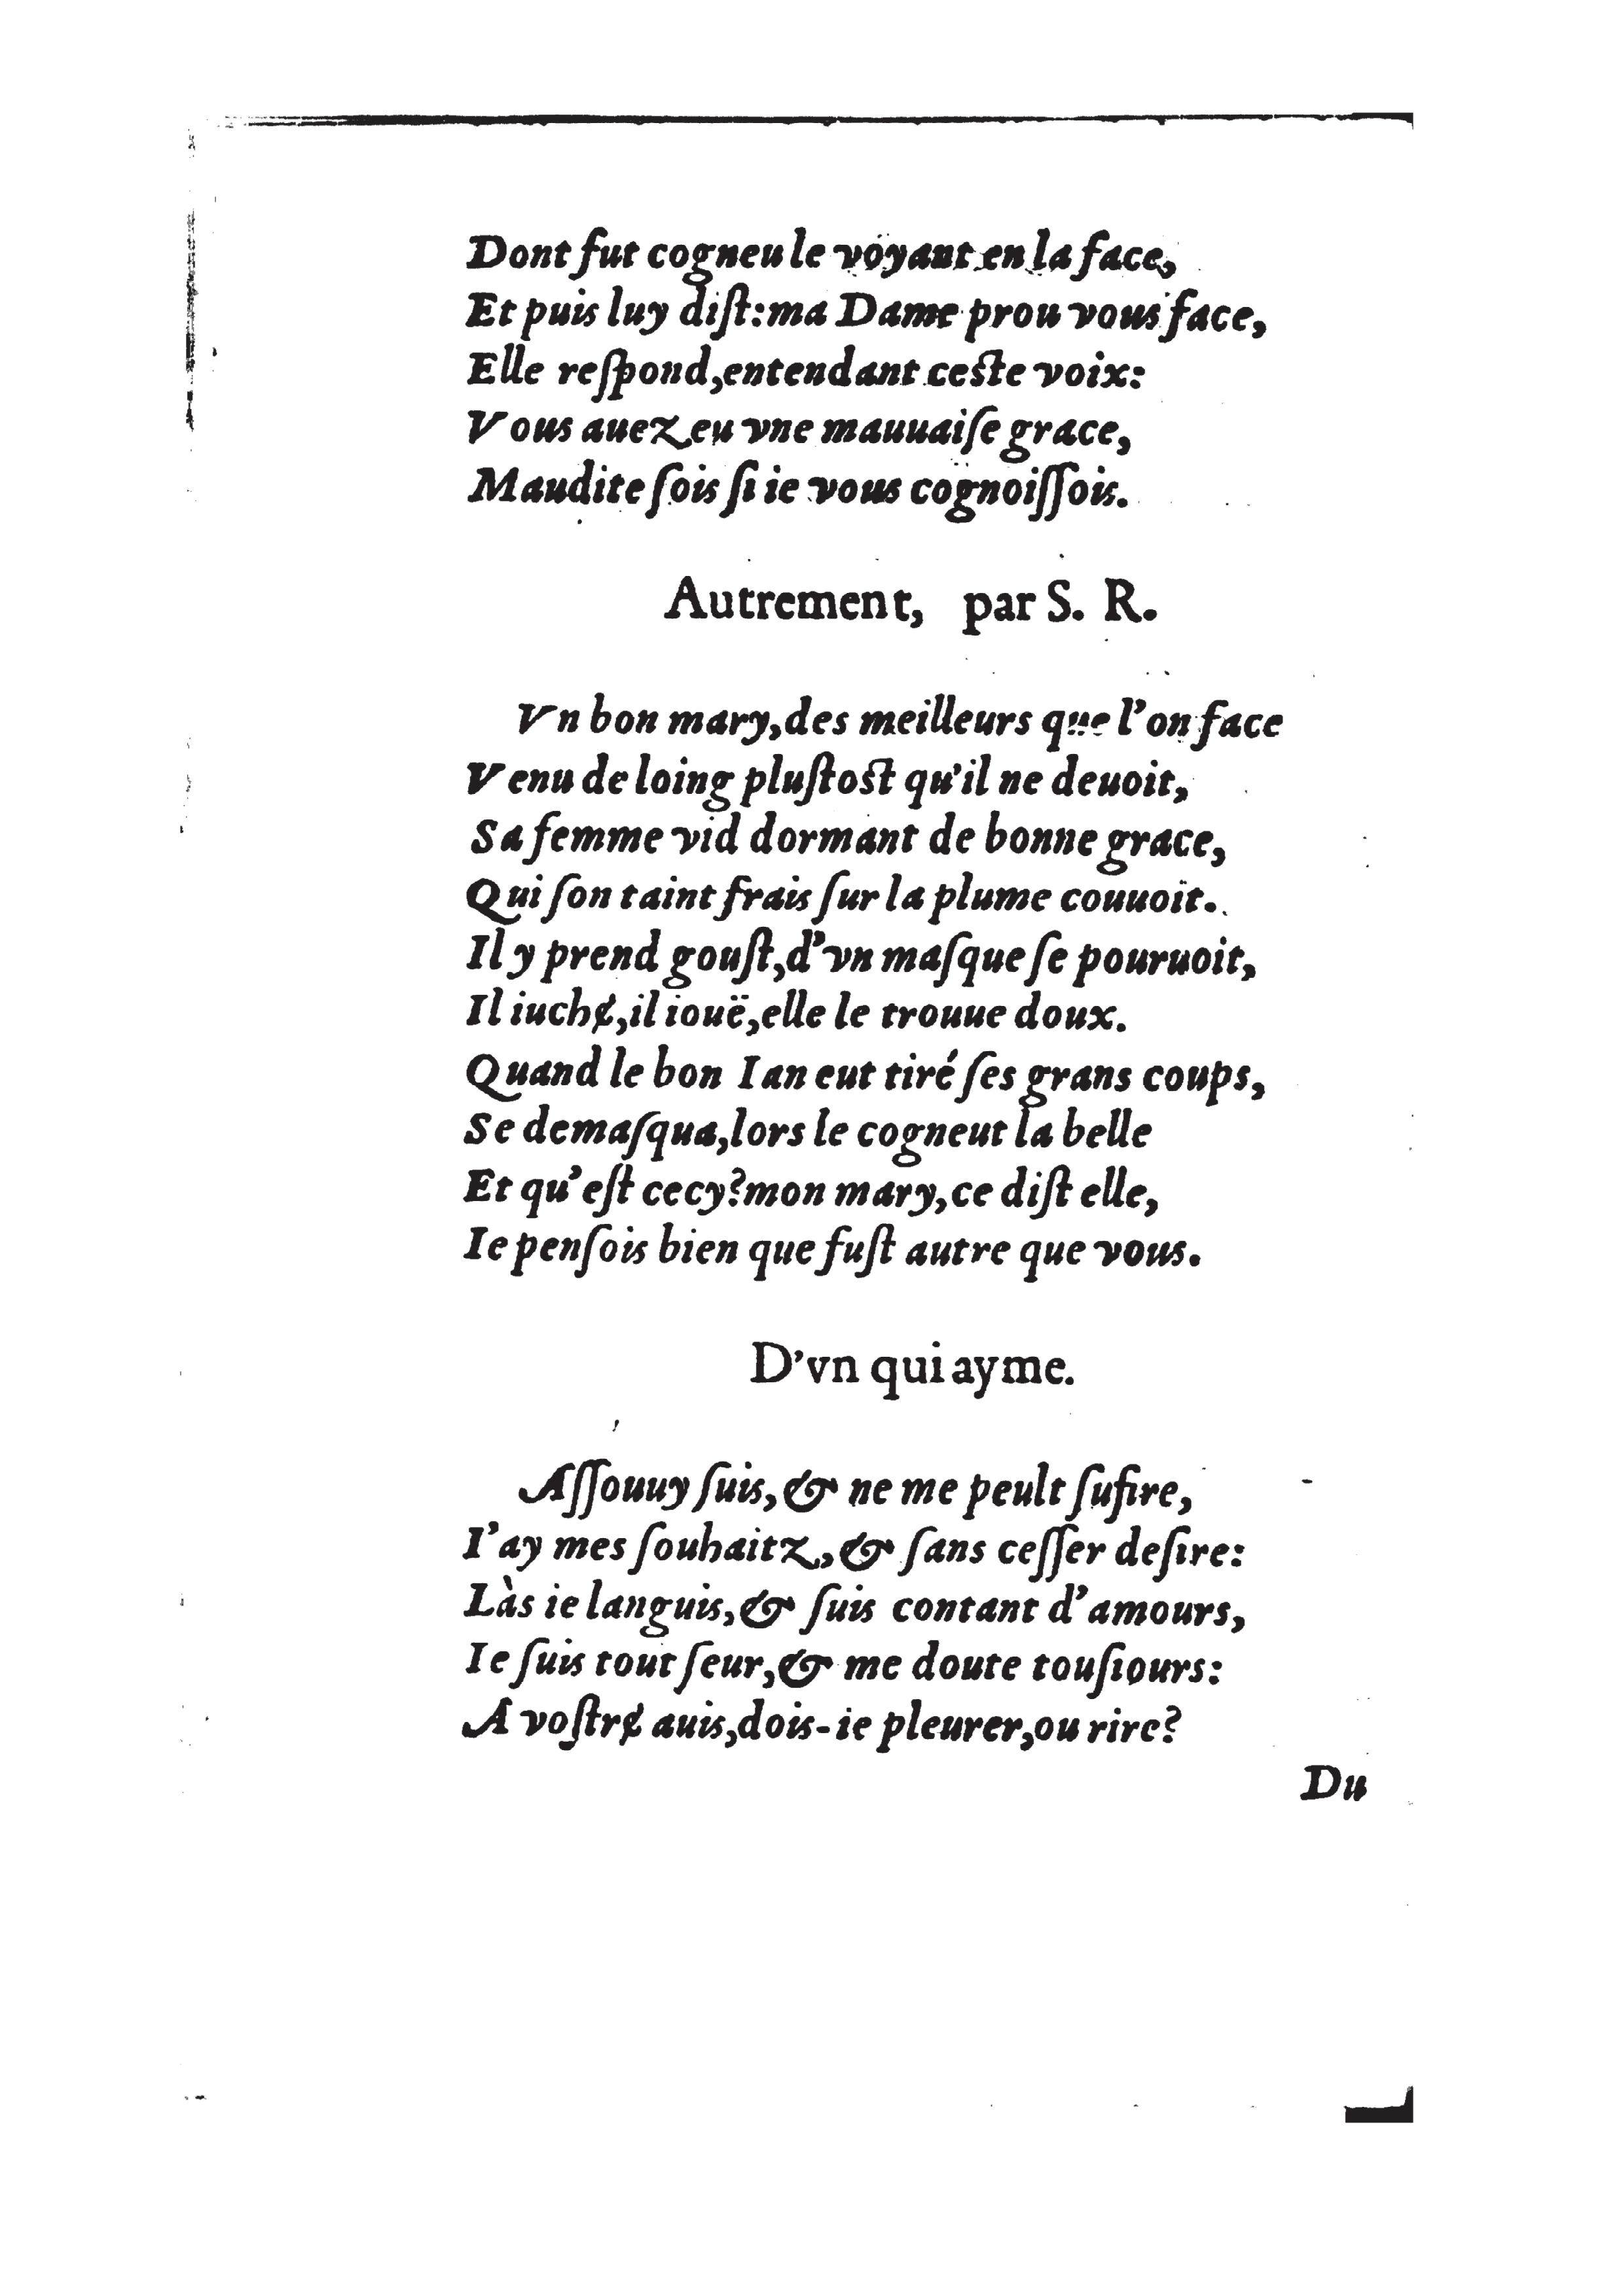 Dont fut cogneu le voyant en la face,
Et puis luy diſt: ma Dame prou vous face,
Elle reſpond, entendant ceſte voix:
Vous auez eu vne mauuaiſe grace,
Maudite ſois ſi ie vous cognoiſſois.
Autrement, par S. R.
Vn bon mary, des meilleurs que l'on face
Venu de loing pluſtoſt qu'il ne deuoit,
Sa femme vid dormant de bonne grace,
Qui ſon taint frais ſur la plume couuoit.
Il y prend gouſt, d'vn maſque ſe pouruoit,
Il iuchɇ, il iouë, elle le trouue doux.
Quand le bon Ian eut tiré ſes grans coups,
Se demaſqua, lors le cogneut la belle
Et qu'eſt cecy? mon mary, ce diſt elle,
Ie penſois bien que fuſt autre que vous.
D'vn qui ayme.
Aſſouuy ſuis, & ne me peult ſufire,
I'ay mes ſouhaitz, & ſans ceſſer deſire:
Làs ie languis, & ſuis contant d'amours,
Ie ſuis tout ſeur, & me doute touſiours:
A voſtrɇ auis, dois-ie pleurer, ou rire?
Du